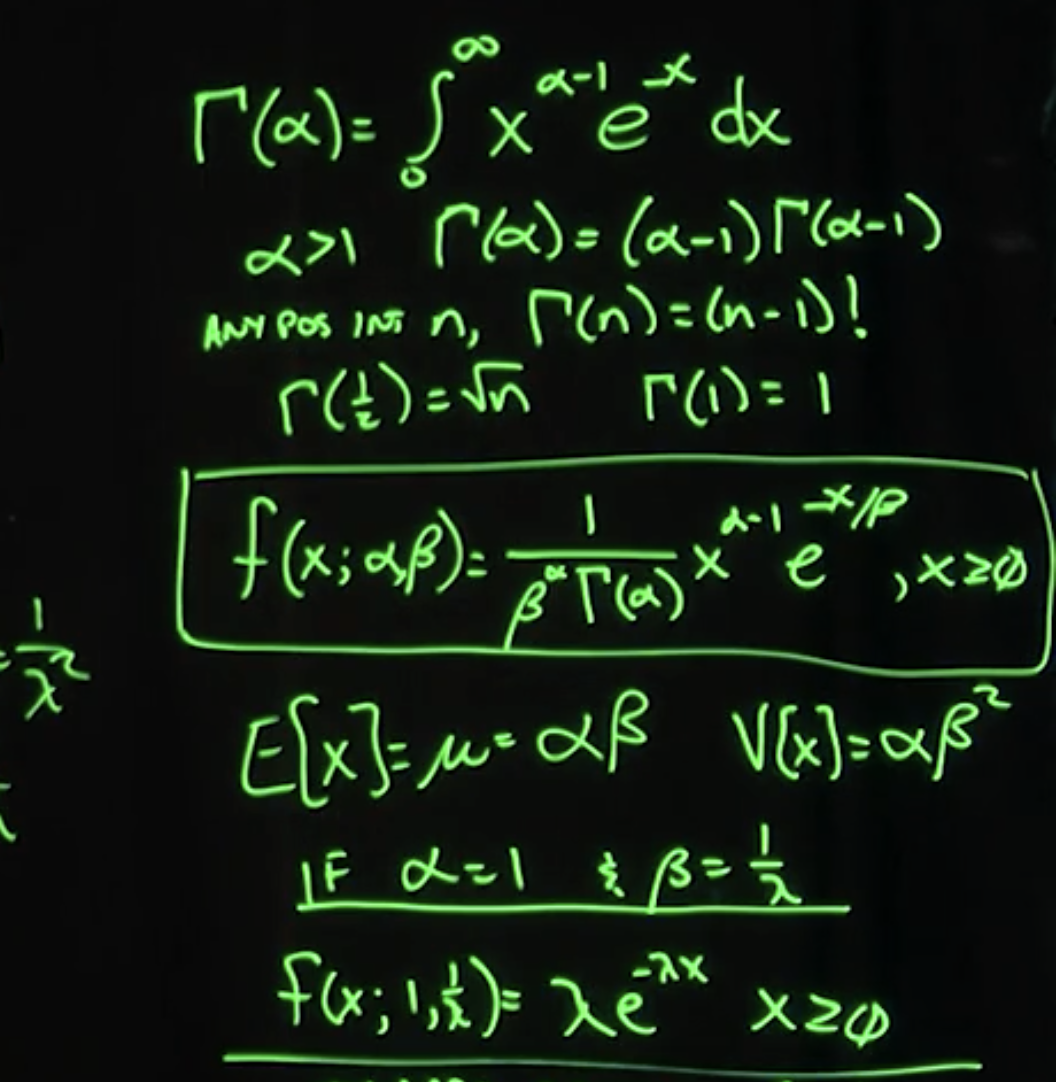 Γ(α) = ∫₀^∞ x^(α-1) e^(-x) dx
α>1 Γ(α) = (α-1)Γ(α-1)
ANY POS INT n, Γ(n) = (n-1)!
Γ(1/2) = √n Γ(1) = 1
f(x; α,β) = 1/(β^α Γ(α)) x^(α-1) e^(-x/β), x≥0
= 1/λ²
E[x] = μ = αβ V[x] = αβ²
IF α=1 & β = 1/λ
f(x; 1, 1/λ) = λe^(-λx) x≥0